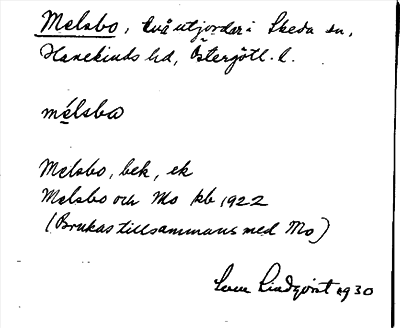 Melsbo, två utjordar i Skeda sn,
Hanekinds hd, Östergötl. l.
mélsba
Melsbo, bek, ek
Melsbo och Mo kb 1922
(Brukas tillsammans med Mo)
Sven Lindqvist 1930